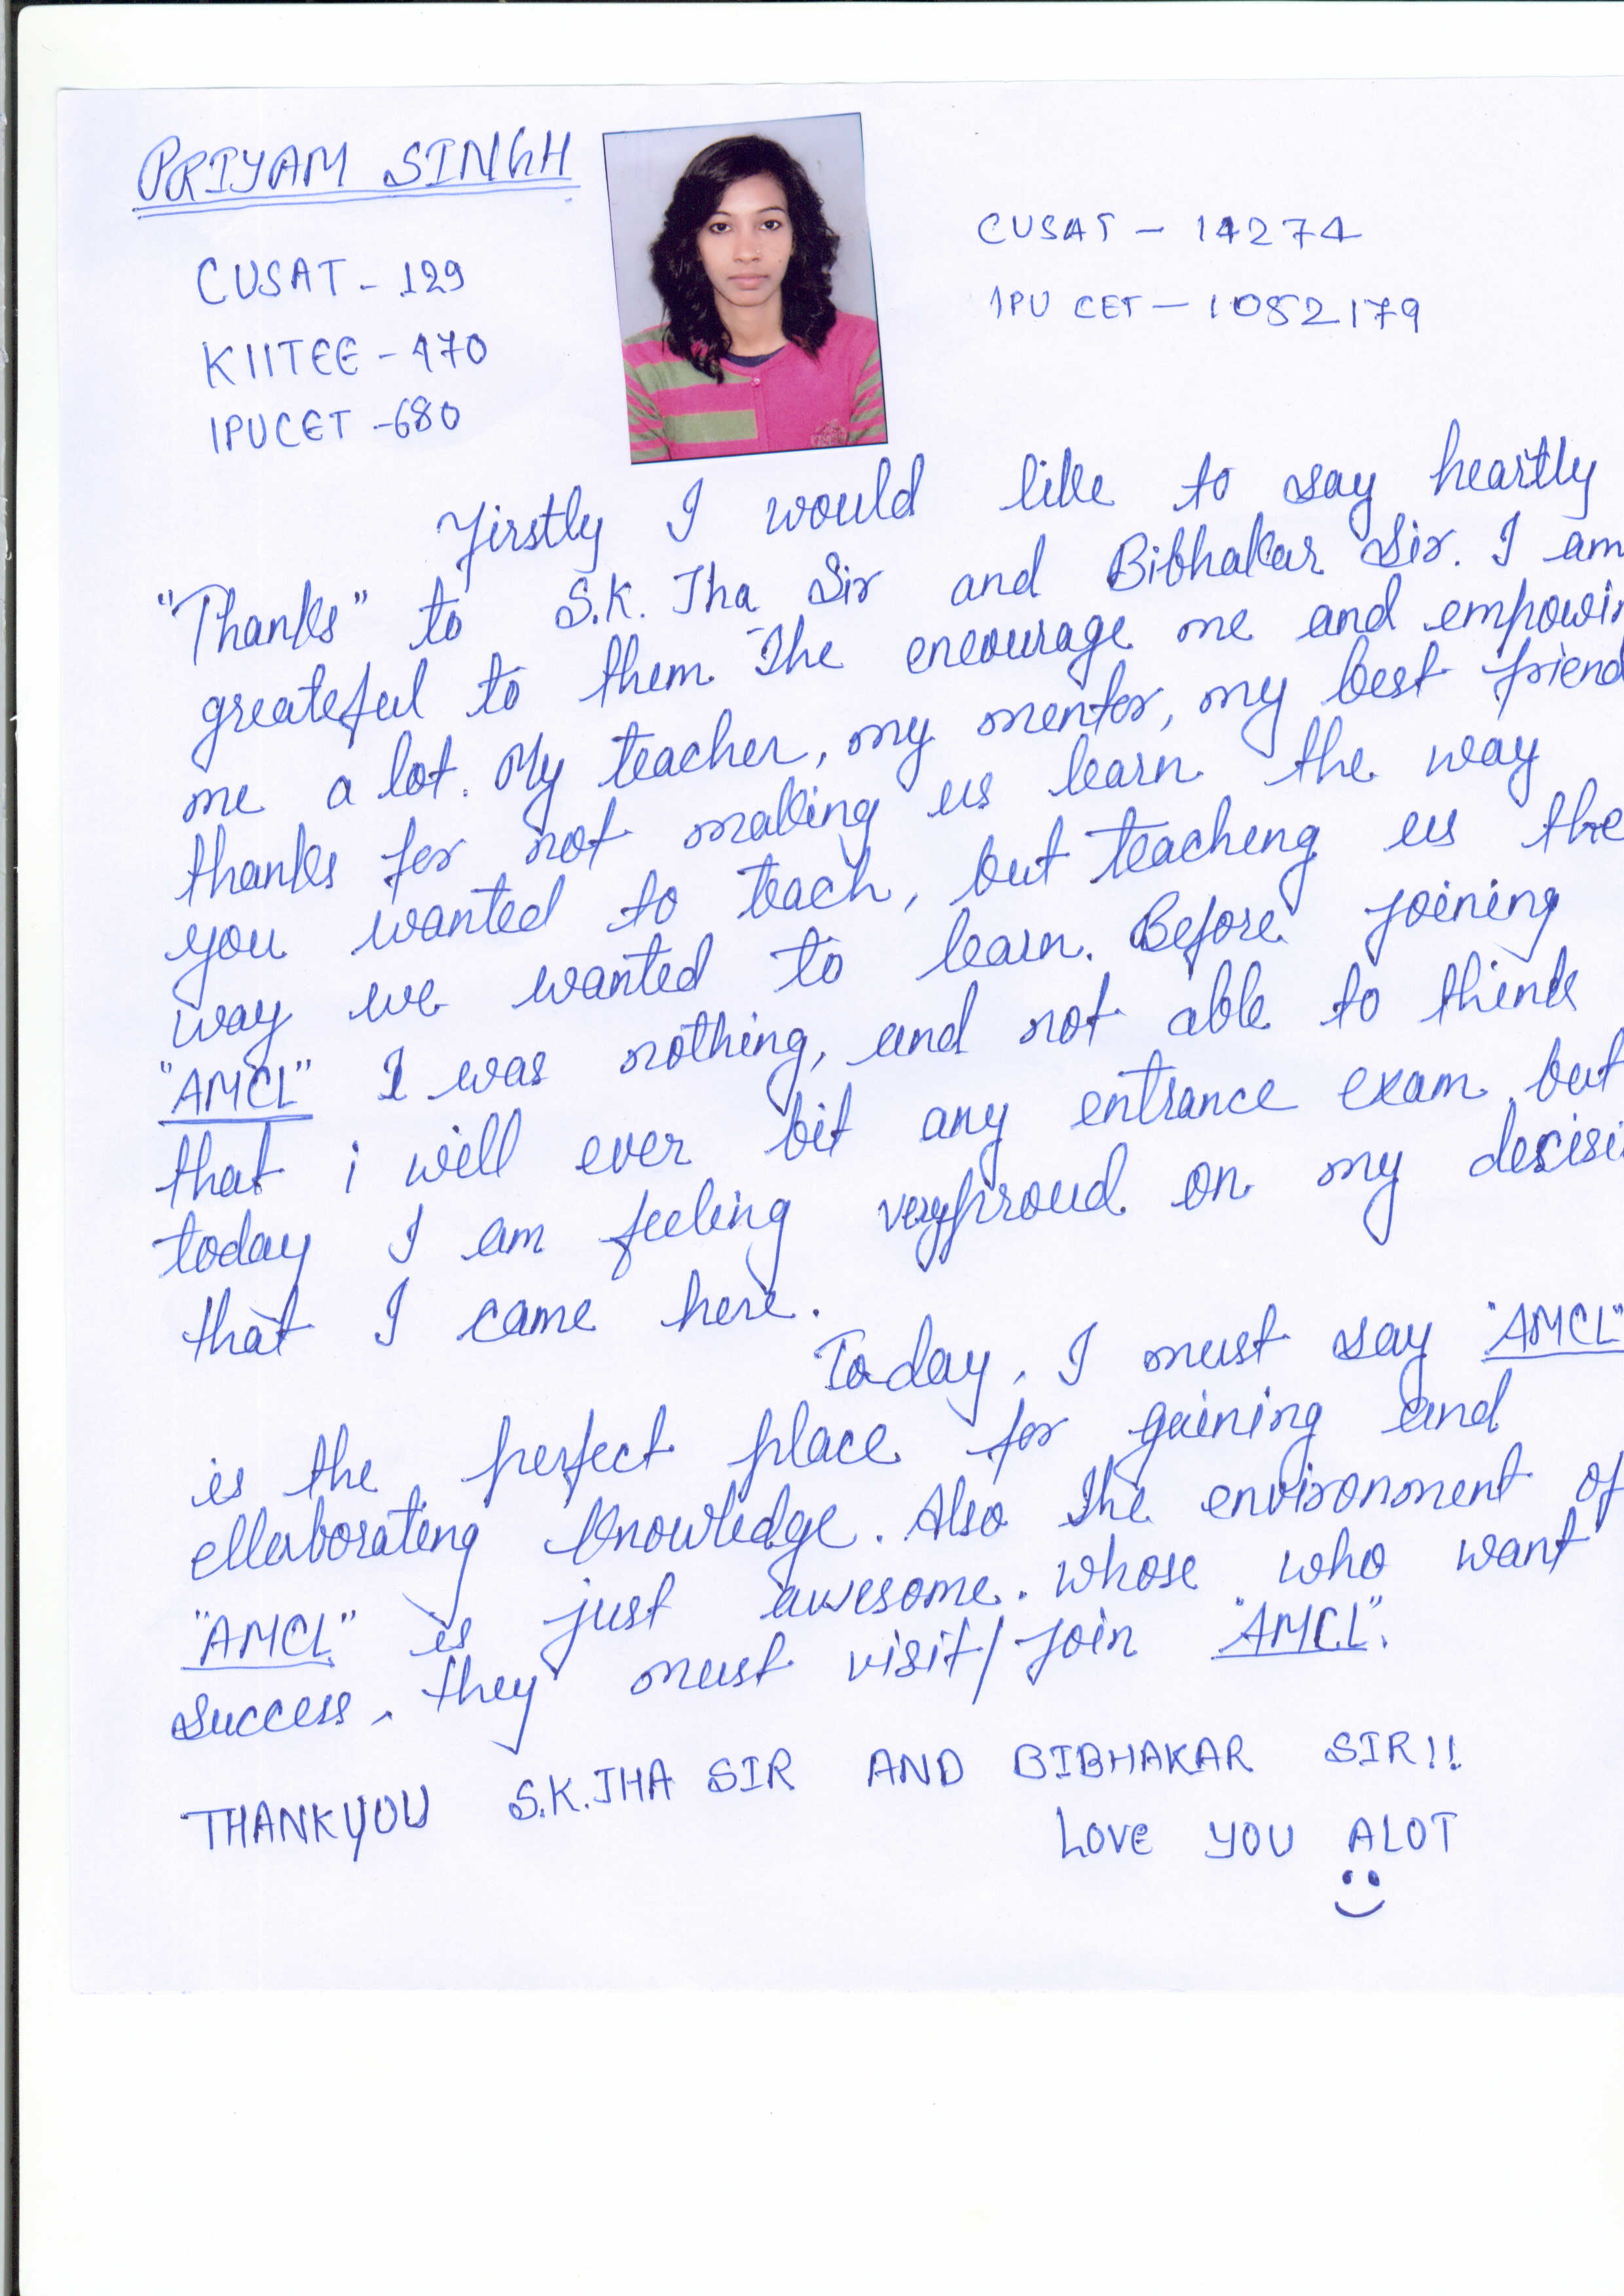 PRIYAM SINGH
CUSAT - 129
KIITEE - 470
IPUCET - 680
CUSAT - 14274
IPU CET - 1082179
Firstly I would like to say heartly
"Thanks" to S.K. Jha Sir and Bibhakar Sir. I am
greateful to them. The encourage me and empowir
me a lot. My teacher, my mentor, my best friend
thanks for not making us learn the way
you wanted to teach, but teaching us the
way we wanted to learn. Before joining
"AMCL" I was nothing, and not able to think
that i will ever bit any entrance exam but
today I am feeling very proud on my decisi
that I came here.
Today, I must say "AMCL"
is the perfect place for gaining and
ellaborating knowledge. Also the environment of
"AMCL" is just awesome. whose who want
success, they must visit/join "AMCL".
THANKYOU S.K.JHA SIR AND BIBHAKAR SIR!!
LOVE YOU ALOT